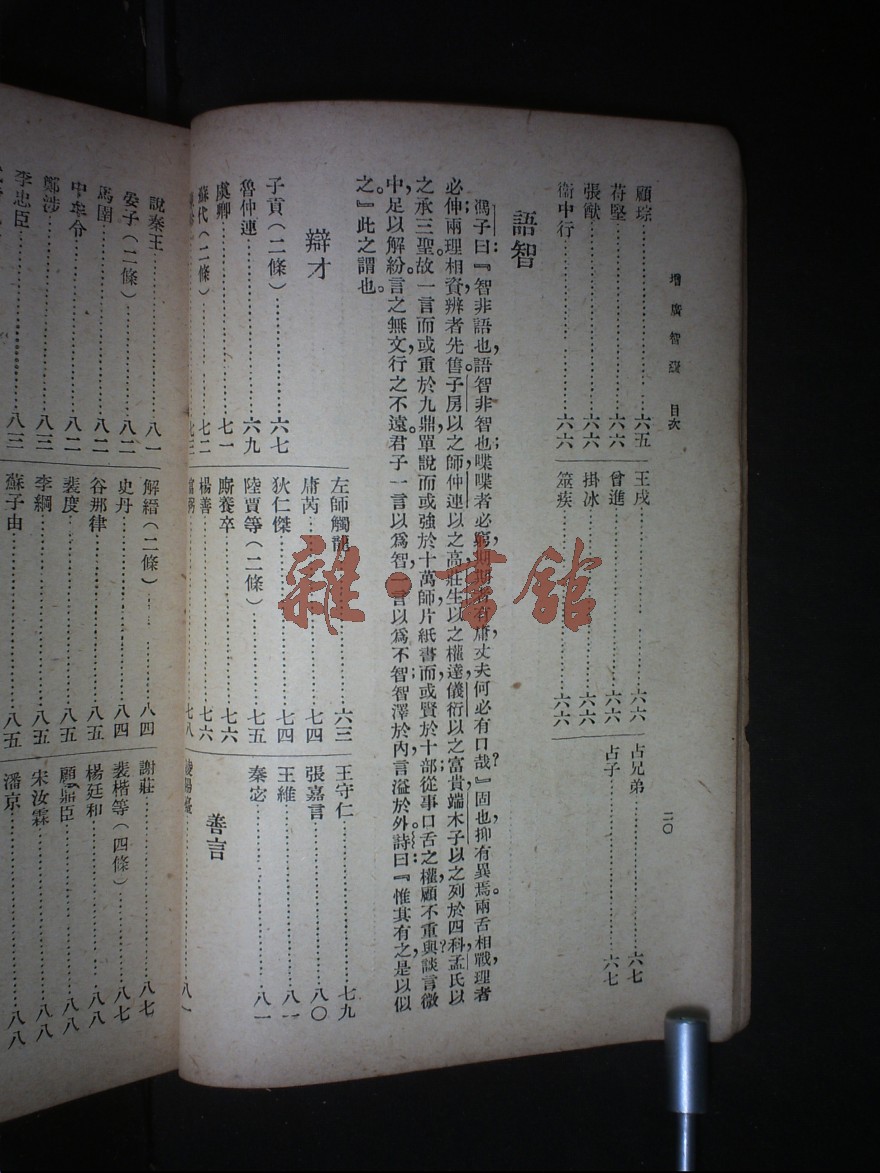 增廣智囊 目次
二〇
顧琮……六五 王戌……六六 占兄弟……六七
苻堅……六六 曾進……六六 占子……六七
張猷……六六 掛冰……六六
衞中行……六六 筮疾……六六
語智
馮子曰:『智非語也,語智非智也;喋喋者必窮,期期者有庸,丈夫何必有口哉?』固也,抑有異焉。兩舌相戰,理者
必伸;兩理相資,辨者先售。子房以之師,仲連以之高,莊生以之權達,儀衍以之富貴,端木子以之列於四科,孟氏以
之承三聖。故一言而或重於九鼎,單說而或強於十萬師,片紙書而或賢於十部從事,口舌之權顧不重與?談言微
中,足以解紛;言之無文,行之不遠。君子一言以爲智,一言以爲不智;智澤於內,言溢於外。詩曰:『惟其有之,是以似
之。』此之謂也。
辯才
左師觸龍……六三 王守仁……七九
庸芮……七四 張嘉言……八〇
子貢(二條)……六七 狄仁傑……七四 王維……八一
魯仲連……六九 陸賈等(二條)……七五 秦宓……八一
虞卿……七一 廝養卒……七六 善言
蘇代(二條)……七二 楊善……七六
七八 八一
說秦王……八一 解縉(二條)……八四 謝莊……八七
晏子(二條)……八二 史丹……八四 裴楷等(四條)……八七
馬圉……八二 谷那律……八五 楊廷和……八八
中牟令……八二 裴度……八五 顧鼎臣……八八
鄭涉……八三 李綱……八五 宋汝霖……八八
李忠臣……八三 蘇子由……八五 潘京……八八
雜·書館